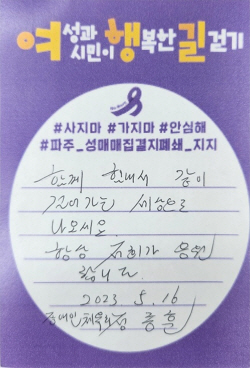 여성과 시민이 행복한 길 걷기
#사지마 #가지마 #안심해
#파주_성매매집결지폐쇄_지지
함께 힘내서 같이
걸어가는 세상으로
나오세요
항상 저희가 응원
합니다.
2023. 5. 16